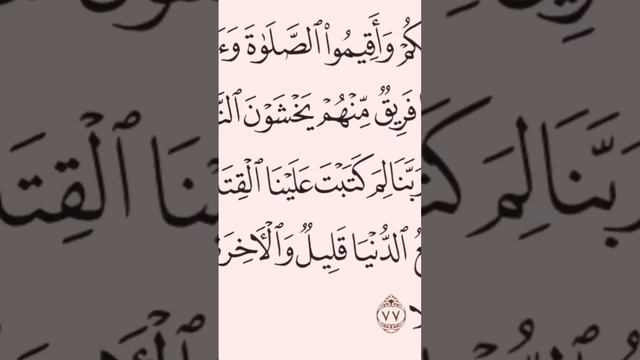 كُمْ وَأَقِيمُوا۟ ٱلصَّلَوٰةَ وَءَ
فَرِيقٌ مِّنْهُمْ يَخْشَوْنَ ٱلنَّ
رَبَّنَا لِمَ كَتَبْتَ عَلَيْنَا ٱلْقِتَا
عُ ٱلدُّنْيَا قَلِيلٌ وَٱلْـَٔاخِرَة
٧٧